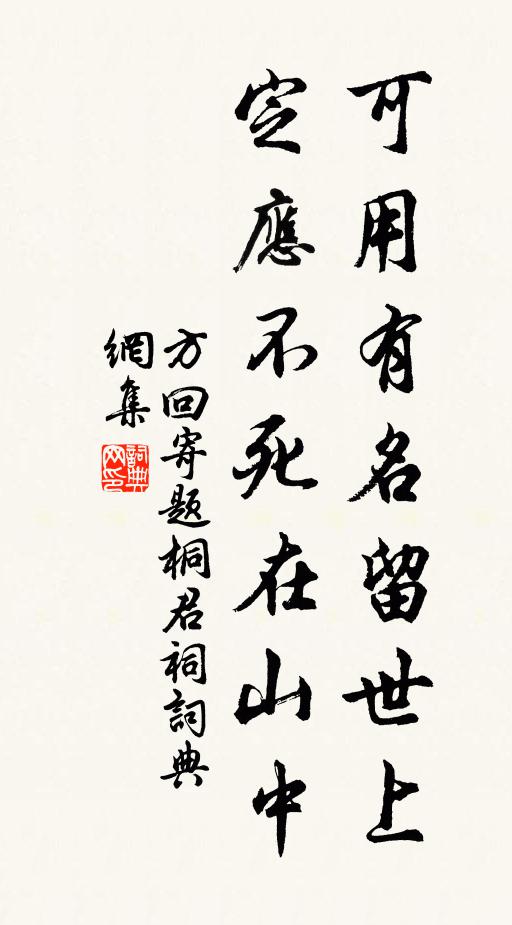 可用有名留世上
定應不死在山中
方回寄题桐君祠詞典
網集
詞典
网印